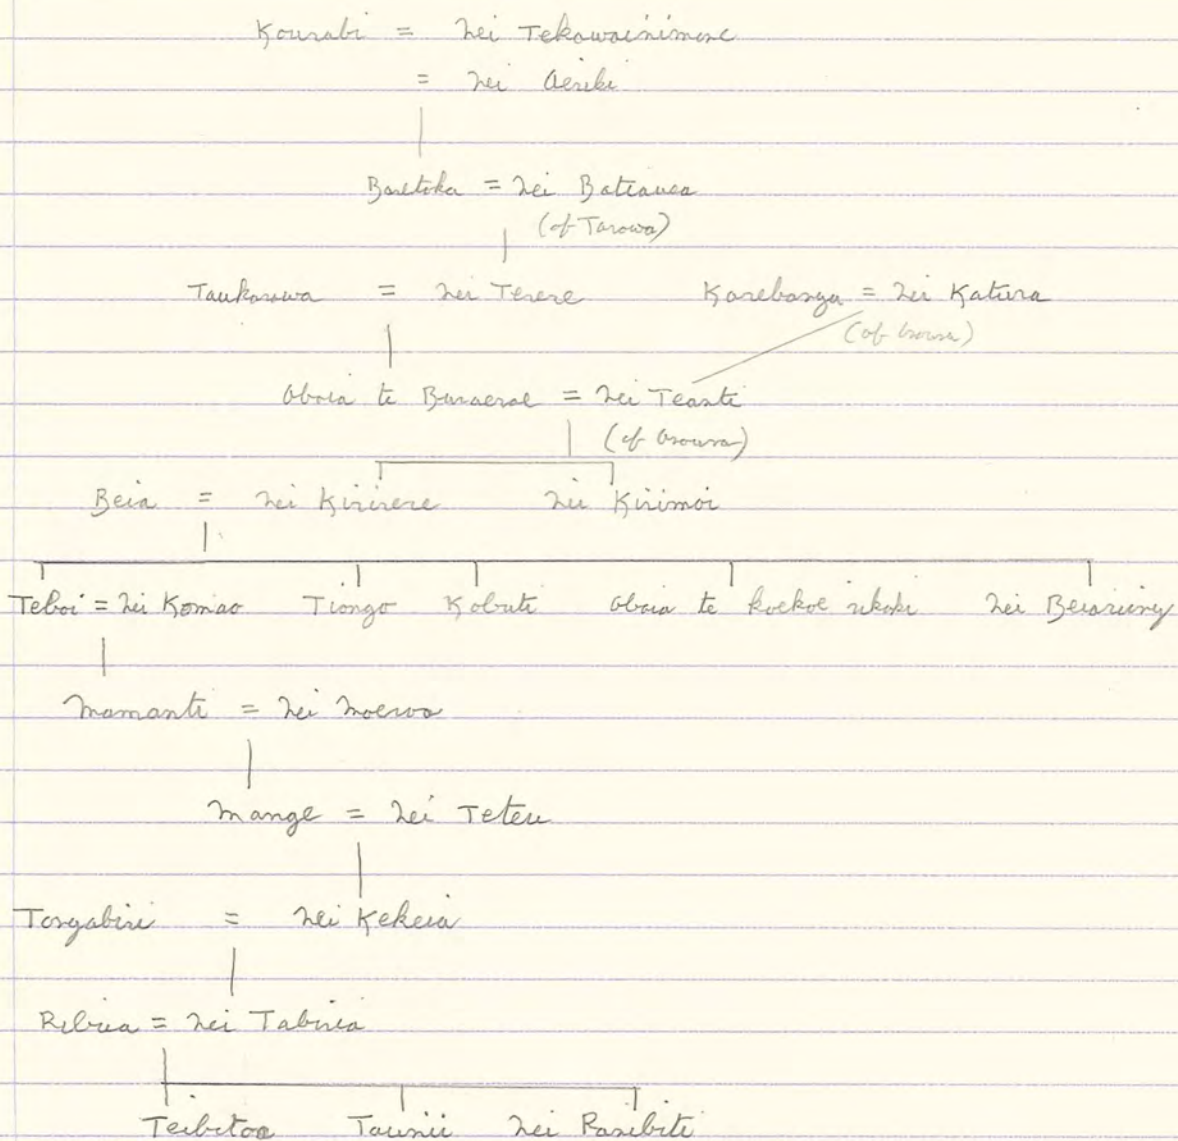 Kourabi = Nei Tekowainimone
= Nei Aeriki
Baretoka = Nei Batiauea
(of Tarowa)
Taukarawa = Nei Terere Karebanga = Nei Katura
(of Onoun)
Obaia te Buraerae = Nei Teanti
(of Onoun)
Beia = Nei Kirirere Nei Kirimoi
Teboi = Nei Komao Tiongo Kobuti Obaia te koekoe nkoki Nei Beiaruru
Mamanti = Nei Moewa
Mange = Nei Teteu
Tongabiri = Nei Kekeia
Ribua = Nei Tabuia
Teibitoa Taunii Nei Ranibiti